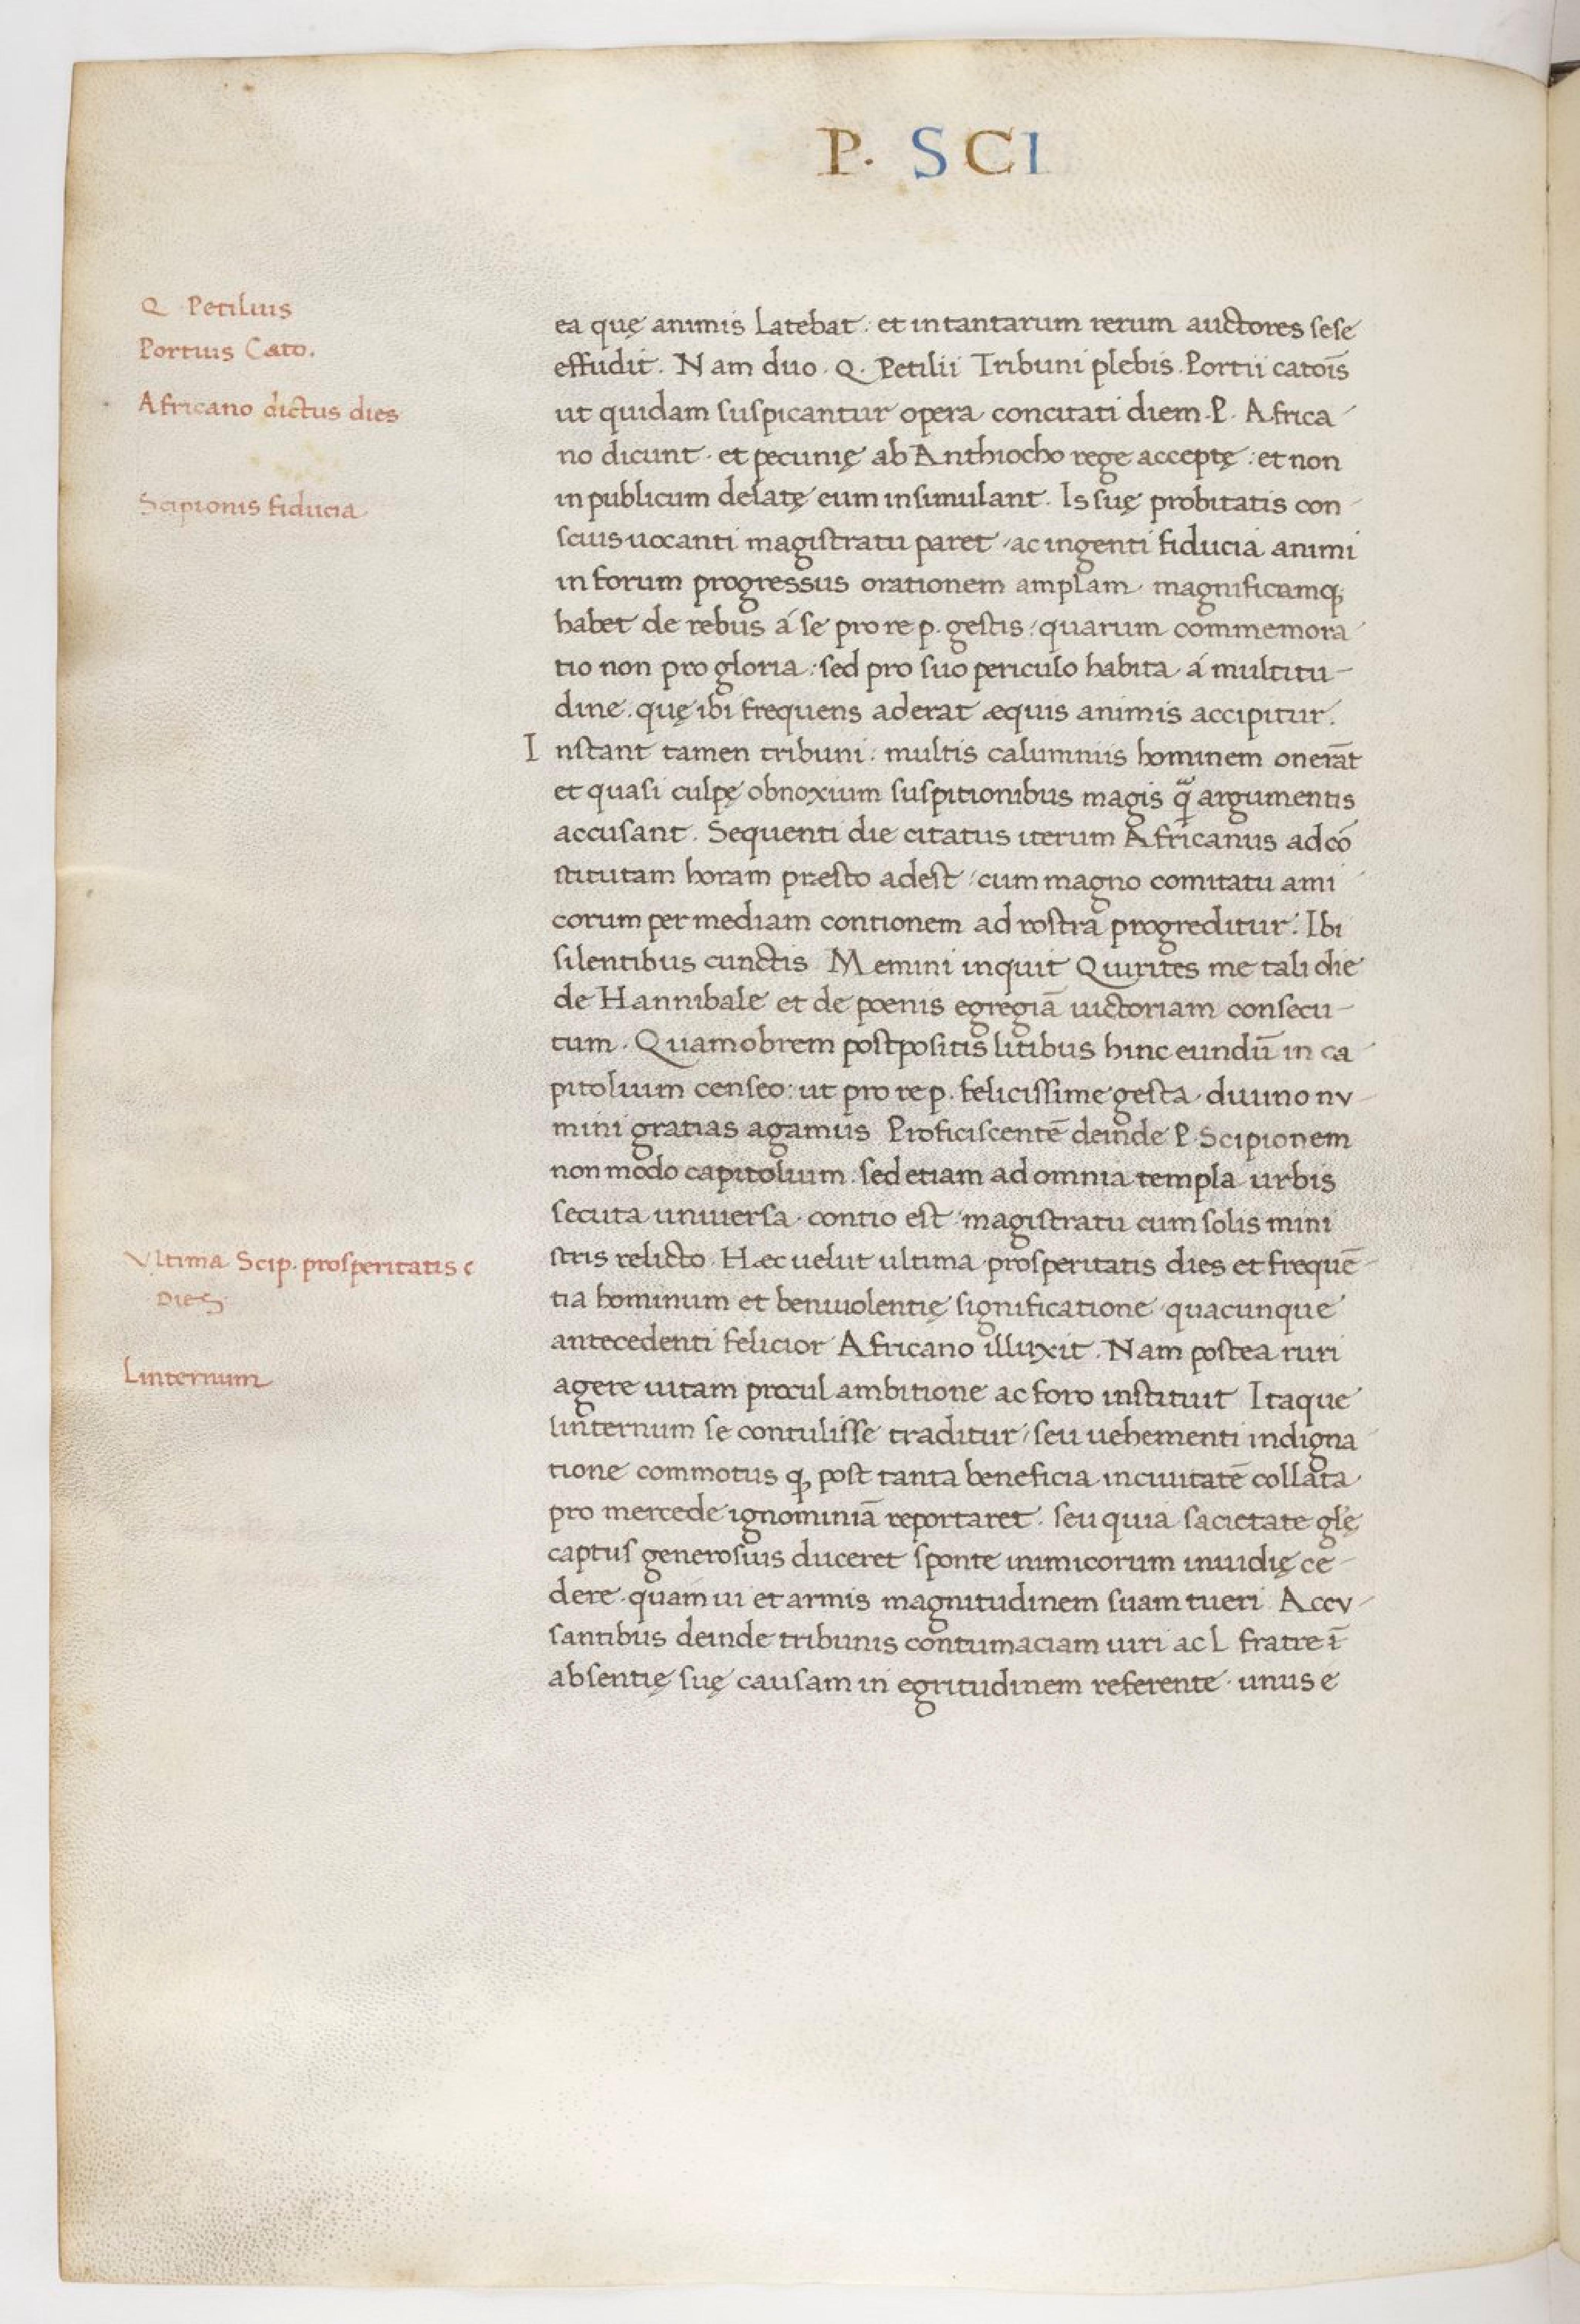 P. SCI
Q. Petilius
Portius Cato.
Africano dictus dies
Scipionis fiducia
Ultima Scip. prosperitatis
Dies
Linternum
ea quę animis latebat: et in tantarum rerum auctores sese
effudit. Nam duo. Q. Petilii Tribuni plebis. Portii catoīs
ut quidam suspicantur opera concitati diem. P. Africa
no dicunt. et pecunię ab Anthiocho rege acceptę: et non
in publicum delatę eum insimulant. Is suę probitatis con
scius uocanti magistratu paret, ac ingenti fiducia animi
in forum progressus orationem amplam magnificamq;
habet de rebus á se pro re p. gestis: quarum commemora
tio non pro gloria: sed pro suo periculo habita á multitu-
dine. quę ibi frequens aderat æquis animis accipitur.
Instant tamen tribuni: multis calumniis hominem onerāt
et quasi culpę obnoxium suspitionibus magis q̃ argumentis
accusant. Sequenti die citatus iterum Africanus ad cō
stitutam horam præsto adest, cum magno comitatu ami
corum per mediam contionem ad rostra progreditur. Ibi
silentibus cunctis Memini inquit Quirites me tali die
de Hannibale et de pœnis egregiā uictoriam consecu-
tum. Quamobrem postpositis litibus hinc eundū in ca
pitolium censeo: ut pro re p. felicissime gesta diuino nu-
mini gratias agamus Proficiscentē deinde P. Scipionem
non modo capitolium. sed etiam ad omnia templa urbis
secuta uniuersa contio est magistratu cum solis mini
stris relicto. Hæc uelut ultima prosperitatis dies et frequē-
tia hominum et beniuolentię significatione quacunque
antecedenti felicior Africano illuxit. Nam postea ruri
agere uitam procul ambitione ac foro instituit Itaque
linternum se contulisse traditur, seu uehementi indigna
tione commotus q; post tanta beneficia in ciuitatē collata
pro mercede ignominiā reportaret. seu quia sacietate glę
captus generosius duceret sponte inimicorum inuidię ce-
dere. quam ui et armis magnitudinem suam tueri Accu-
santibus deinde tribunis contumaciam uiri ac L fratre ī
absentię suę causam in egritudinem referente. unus e